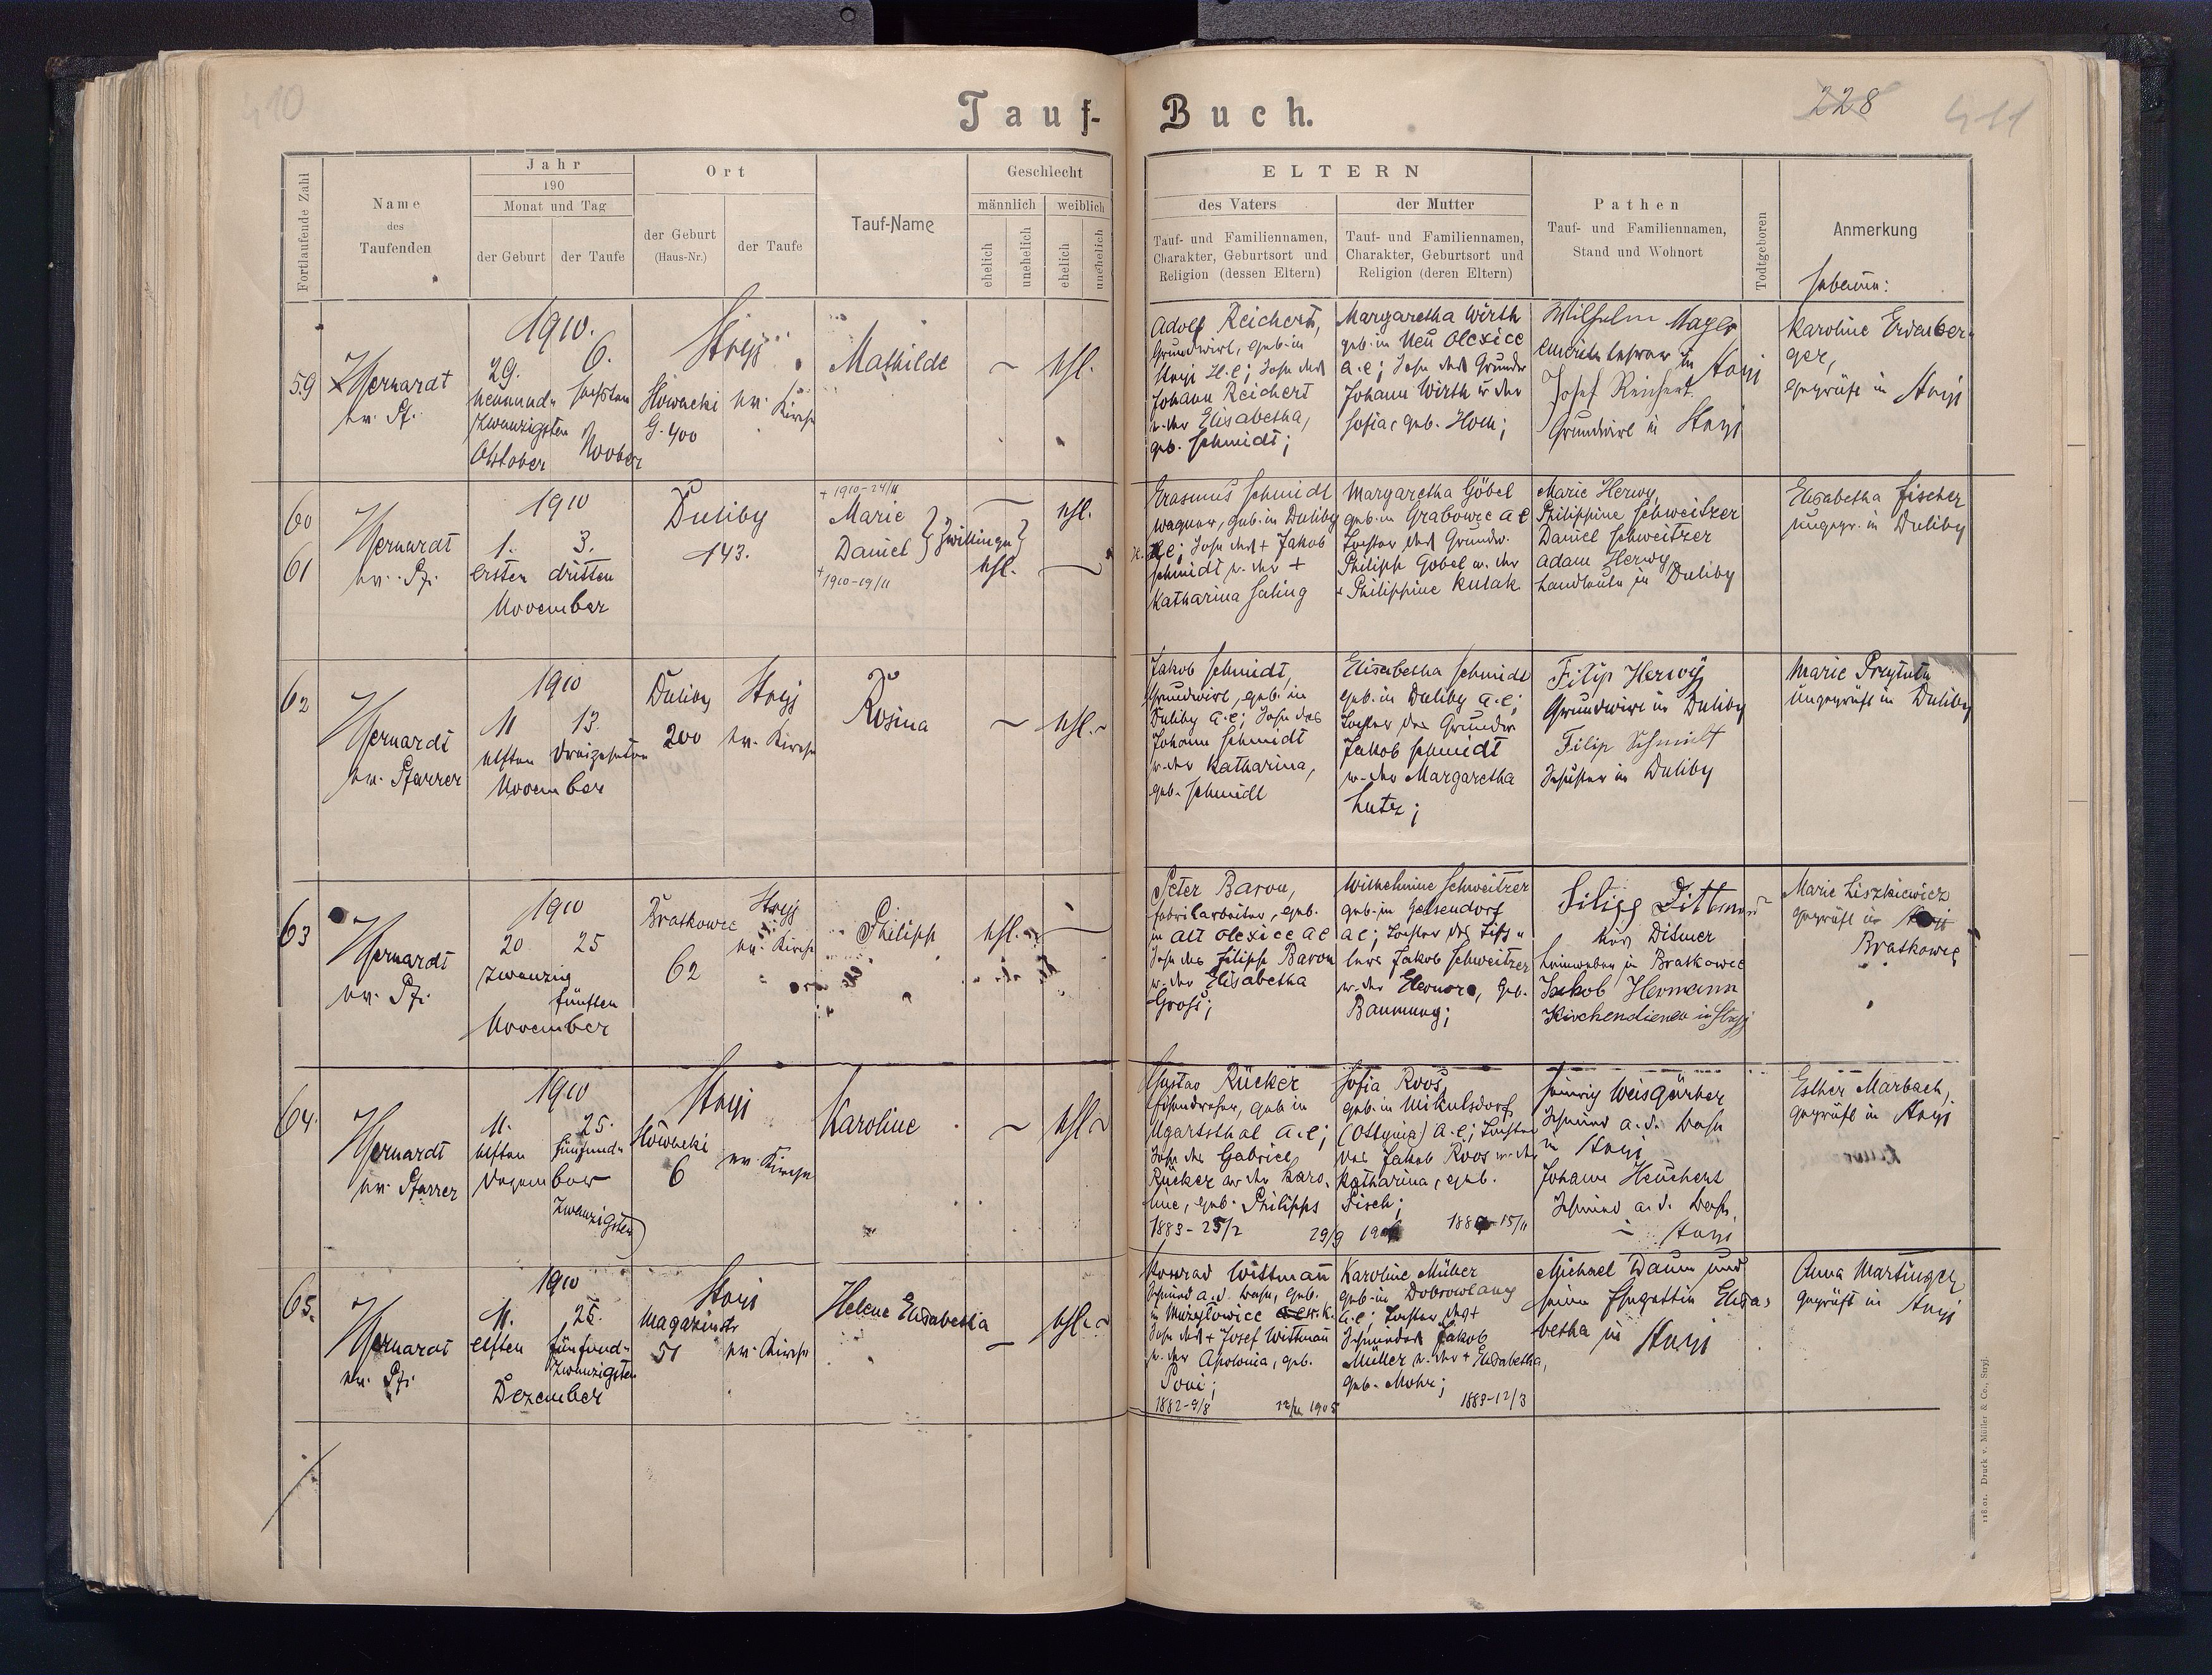 410
Tauf-
Buch.
228
411
Fortlaufende Zahl
Name
des
Taufenden
Jahr
190
Monat und Tag
der Geburt
der Taufe
Ort
der Geburt
(Haus-Nr.)
der Taufe
Tauf-Name
Geschlecht
männlich
weiblich
ehelich
unehelich
ehelich
unehelich
ELTERN
des Vaters
Tauf- und Familiennamen,
Charakter, Geburtsort und
Religion (dessen Eltern)
der Mutter
Tauf- und Familiennamen,
Charakter, Geburtsort und
Religion (deren Eltern)
Pathen
Tauf- und Familiennamen,
Stand und Wohnort
Todtgeboren
Anmerkung
Hebamme:
59
ev. Pf.
1910.
29.
6.
neunund-
sechsten
zwanzigsten
Oktober
Novber
Stryj
Słowacki
G. 400
ev. Kirche
Mathilde
ehl.
Adolf Reichert,
Grundwirt, geb. in
Stryj H.C; Sohn des
Johann Reichert
u. der Elisabetha,
geb. Schmidt;
Margaretha Wirth
geb. in Neu Olexice
A.C; des Grundw.
Johann Wirth u. der
Sofia, geb. Hoch;
Wilhelm
in Stryj
Josef Reichert
Grundwirt in Stryj
Karoline Erdenber-
ger,
geprüft in Stryj
60
61
ev. Pf.
1910
1.
3.
ersten
dritten
November
Duliby
143.
+ 1910-24/11
Marie
Daniel
Zwillinge
+ 1910-19/11
ehl.
ehl.
Erasmus Schmidt
Wagner, geb. in Duliby
Sohn des + Jakob
Schmidt u. der +
Katharina
Margaretha Göbel
geb. in Grabowce A C
Tochter des Grundw.
Philipp Göbel u. der
Philippine Kulak
Marie Herwy,
Philippine Schweitzer
Daniel Schweitzer
Adam Herwy
Landleute in Duliby
Elisabetha Fischer
ungepr. in Duliby
62
ev. Pfarrer
1910
11
13.
elften
dreizehnten
November
Duliby
200
Stryj
ev. Kirche
Rosina
ehl.
Jakob Schmidt,
Grundwirt, geb. in
Duliby A.C; Sohn des
Johann Schmidt
u. der Katharina,
geb. Schmidt
Elisabetha Schmidt
geb. in Duliby A.C;
Tochter des Grundw.
Jakob Schmidt
u. der Margaretha
Lutz;
Filip Herwy
Grundwirt in Duliby
Filip Schmidt
Schuster in Duliby
Marie
ungeprüft in Duliby
63
ev. Pf.
1910
20.
25
zwanzig
fünften
November
Bratkowce
62
Stryj
ev. Kirche
Philipp
ehl.
Peter Baron,
Fabrikarbeiter, geb.
in Alt Olexice A C
Sohn des Filipp Baron
u. der Elisabetha
Gross;
Wilhelmine Schweitzer
geb. in Gelsendorf
A C; Tochter des Tisch-
lers Jakob Schweitzer
u. der Eleonora, geb.
Baumung;
Filipp Dittmer
Ditmer
Leinweber in Bratkowce
Jakob Hermann
Kirchendiener in Stryj
Marie Liszkiewicz
geprüft in Stryj
Bratkowce
64.
ev. Pfarrer
1910
11.
25.
elften
fünfund-
Dezember
zwanzigsten
Stryj
Słowacki
6
ev. Kirche
Karoline
ehl.
Gustav Rücker
Eisendreher, geb. in
Ugartsthal A.C;
Sohn des Gabriel
Rücker u. der Karo-
line, geb. Philipps
1883-25/2
29/9
Sofia Roos,
geb. in Mikulsdorf
(Ottynia) A.C; Tochter
des Jakob Roos u. der
Katharina, geb.
Fisch;
Heinrich Weisgärber
Schmied a. d. Bahn
in Stryj
Johann Heuchert
Schmied a. d. Bahn
in Stryj
Esther Marbach,
geprüft in Stryj
65.
ev. Pf.
1910
11.
25.
elften
fünfund-
zwanzigsten
Dezember
Stryj
Magazinstr
51
ev. Kirche
Helene Elisabetha
ehl.
Konrad Wittmann
Schmied a. d. Bahn, geb.
Sohn des + Josef Wittmann
u. der Apolonia, geb.
1882-9/8
1905
Karoline Müller
geb. in Dobrowlany
A.C; Tochter des +
Schmiedes Jakob
Müller u. der + Elisabetha,
geb. Mohr;
1883-12/3
Michael Daum und
seine Ehegattin Elisa-
betha in Stryj
Anna Martinger
geprüft in Stryj
118.01. Druck v. Müller & Co., Stryj.